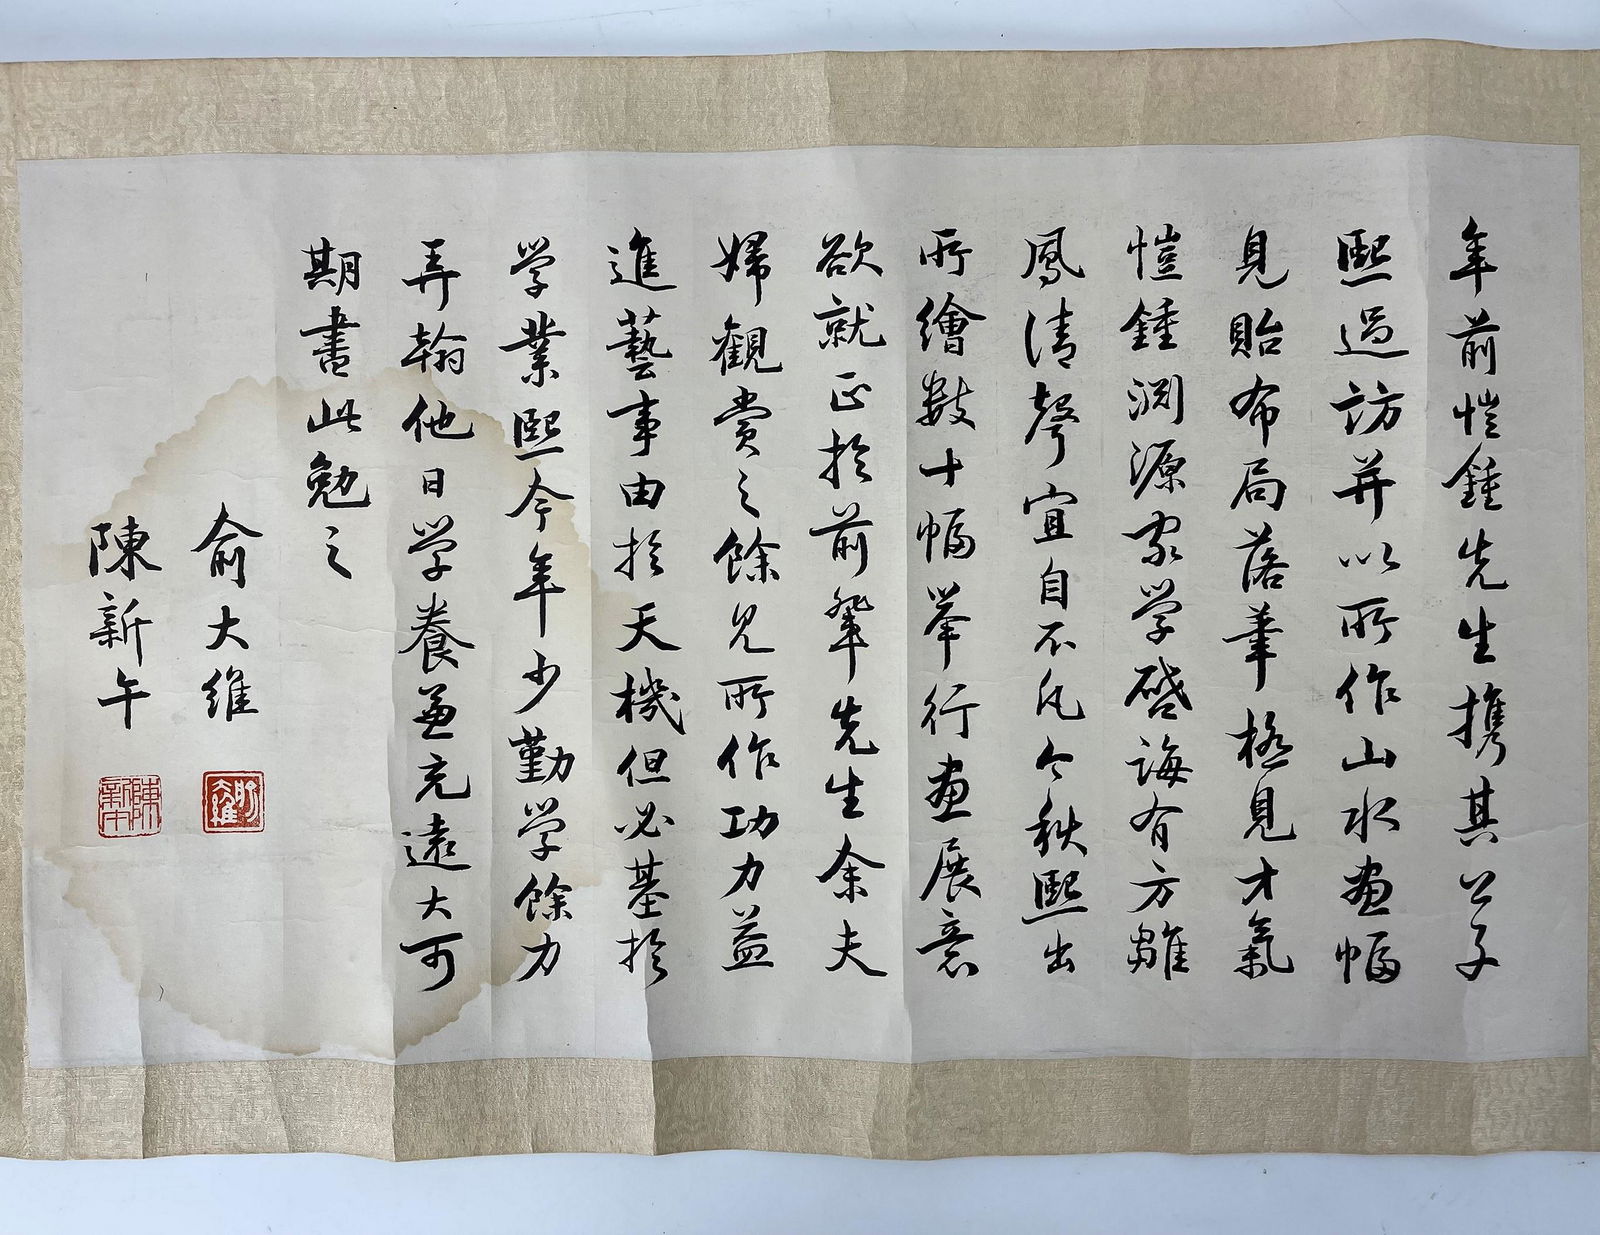 年前愷鍾先生携其公子
熙過訪并以所作山水畫幅
見貽布局落筆極見才氣
愷鍾淵源家学啓誨有方雛
鳳清聲宜自不凡今秋熙出
所繪數十幅举行畫展意
欲就正於前輩先生余夫
婦觀賞之餘見所作功力益
進藝事由於天機但必基於
学業熙今年少勤学餘力
弄翰他日学養兼充遠大可
期書此勉之
俞大維
陳新午
俞大維
陳新午